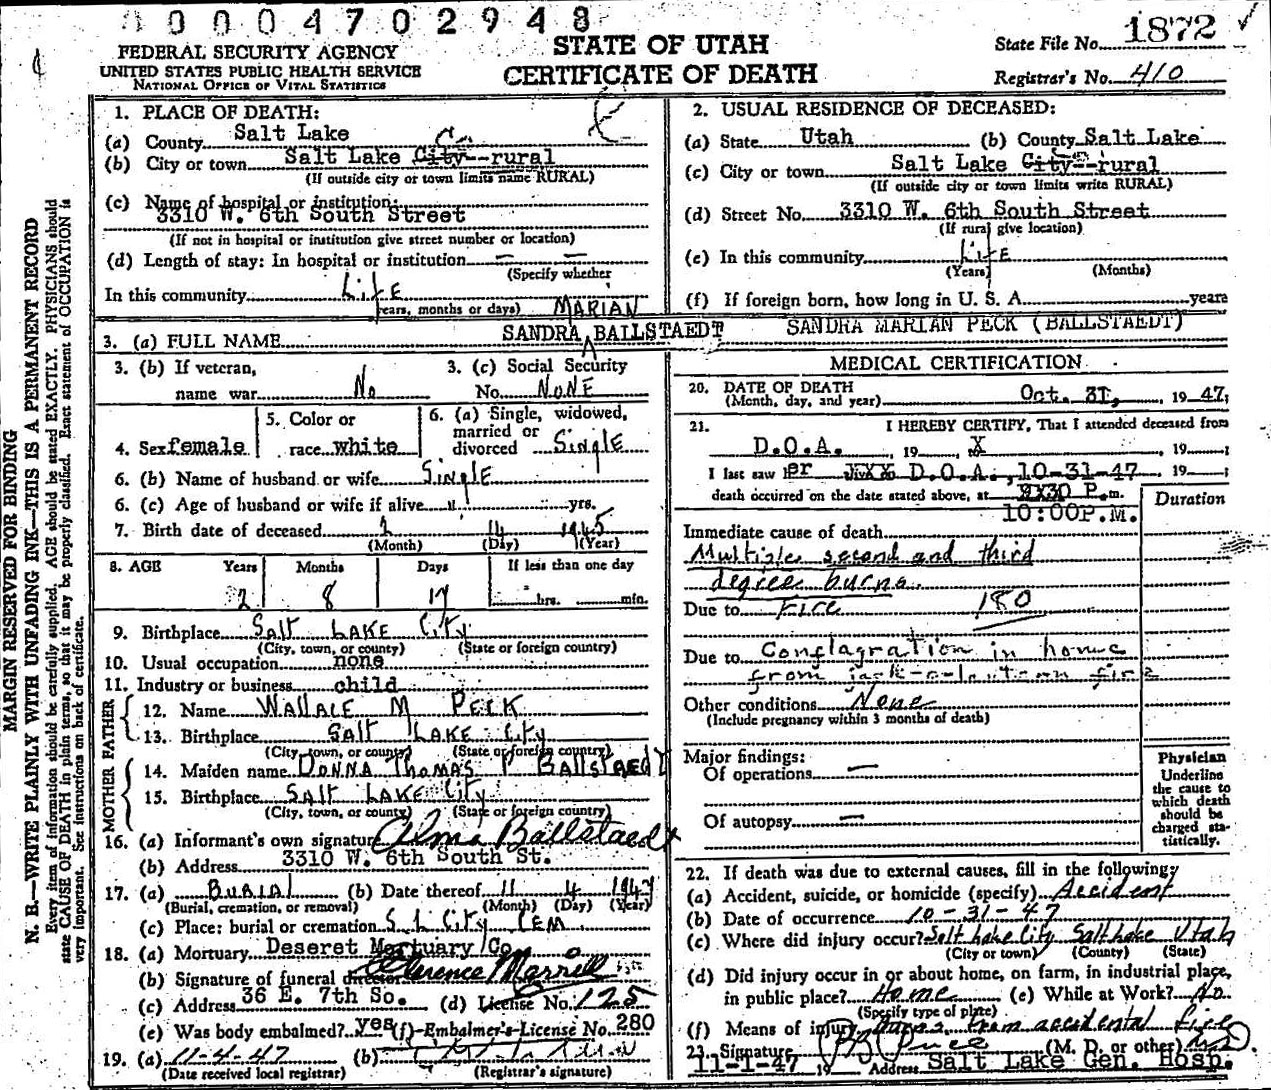 0 0 0 4 7 0 2 9 4 8
FEDERAL SECURITY AGENCY
UNITED STATES PUBLIC HEALTH SERVICE
NATIONAL OFFICE OF VITAL STATISTICS
STATE OF UTAH
CERTIFICATE OF DEATH
State File No. 1872 ✓
Registrar's No. 410
MARGIN RESERVED FOR BINDING
N. B.—WRITE PLAINLY WITH UNFADING INK—THIS IS A PERMANENT RECORD
Every item of information should be carefully supplied. AGE should be stated EXACTLY. PHYSICIANS should
state CAUSE OF DEATH in plain terms, so that it may be properly classified. Exact statement of OCCUPATION is
very important. See instructions on back of certificate.
1. PLACE OF DEATH:
(a) County Salt Lake
(b) City or town Salt Lake City--rural
Co.
(If outside city or town limits name RURAL)
(c) Name of hospital or institution:
3310 W. 6th South Street
(If not in hospital or institution give street number or location)
(d) Length of stay: In hospital or institution — —
(Specify whether
In this community Life
years, months or days)
2. USUAL RESIDENCE OF DECEASED:
(a) State Utah (b) County Salt Lake
(c) City or town Salt Lake City--rural
Co.
(If outside city or town limits write RURAL)
(d) Street No. 3310 W. 6th South Street
(If rural give location)
(e) In this community Life
(Years) (Months)
(f) If foreign born, how long in U. S. A. years
MARIAN
3. (a) FULL NAME SANDRA BALLSTAEDT SANDRA MARIAN PECK (BALLSTAEDT)
3. (b) If veteran,
name war No
3. (c) Social Security
No. NONE
4. Sex female
5. Color or
race white
6. (a) Single, widowed,
married or
divorced Single
6. (b) Name of husband or wife Single
6. (c) Age of husband or wife if alive " yrs.
7. Birth date of deceased 2 14 1945
(Month) (Day) (Year)
8. AGE Years Months Days If less than one day
2 8 17 hrs. min.
9. Birthplace Salt LAKE City
(City, town, or county) (State or foreign country)
10. Usual occupation none
11. Industry or business child
FATHER
12. Name WALLACE M PECK
13. Birthplace SALT LAKE City
(City, town, or county) (State or foreign country)
MOTHER
14. Maiden name DONNA Thomas P BALLSTAEDT
15. Birthplace SALT LAKE City
(City, town, or county) (State or foreign country)
16. (a) Informant's own signature Alma Ballstaedt
(b) Address 3310 W. 6th South St.
17. (a) BURIAL (b) Date thereof 11 4 1947
(Burial, cremation, or removal) (Month) (Day) (Year)
(c) Place: burial or cremation S. L. City CEM
18. (a) Mortuary Deseret Mortuary Co
(b) Signature of funeral director Clarence Morrill
(c) Address 36 E. 7th So. (d) License No. 125
(e) Was body embalmed? yes (f) Embalmer's License No. 280
19. (a) 11-4-47 (b)
(Date received local registrar) (Registrar's signature)
MEDICAL CERTIFICATION
20. DATE OF DEATH
(Month, day, and year) Oct. 31, 1947
21. I HEREBY CERTIFY, That I attended deceased from
D.O.A. , 19 X , 19
I last saw her XXX D.O.A., 10-31-47 19
death occurred on the date stated above, at 9:30 P.m.
10:00P.M.
Duration
Immediate cause of death
Multiple second and third
degree burns
Due to Fire 180
Due to Conflagration in home
from jack-o-lantern fire
Other conditions None
(Include pregnancy within 3 months of death)
Major findings:
Of operations —
Of autopsy —
Physician
Underline
the cause to
which death
should be
charged sta-
tistically.
22. If death was due to external causes, fill in the following:
(a) Accident, suicide, or homicide (specify) Accident
(b) Date of occurrence 10-31-47
(c) Where did injury occur? Salt Lake City Salt Lake Utah
(City or town) (County) (State)
(d) Did injury occur in or about home, on farm, in industrial place,
in public place? Home (e) While at Work? No
(Specify type of place)
(f) Means of injury Burns from accidental fire
23. Signature Price (M. D. or other) M.D.
11-1-47 19 Address Salt Lake Gen. Hosp.